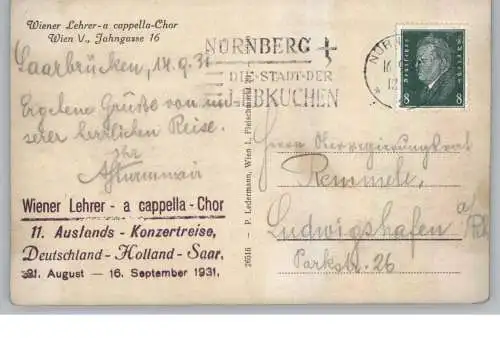 Wiener Lehrer-a cappella-Chor
Wien V., Jahngasse 16
NÜRNBERG
DIE STADT DER
LEBKUCHEN
NÜR
Deutsches Reich
8 8
Saarbrücken, 14.9.31
Ergebene Grüße von un-
serer herrlichen Reise.
Ihr
Wiener Lehrer - a cappella - Chor
11. Auslands - Konzertreise,
Deutschland - Holland - Saar,
21. August — 16. September 1931.
26516 - P. Ledermann, Wien I., Fleischmarkt
Herrn Oberregierungsrat
Remmele,
Ludwigshafen a/Rh
Parkstr. 26